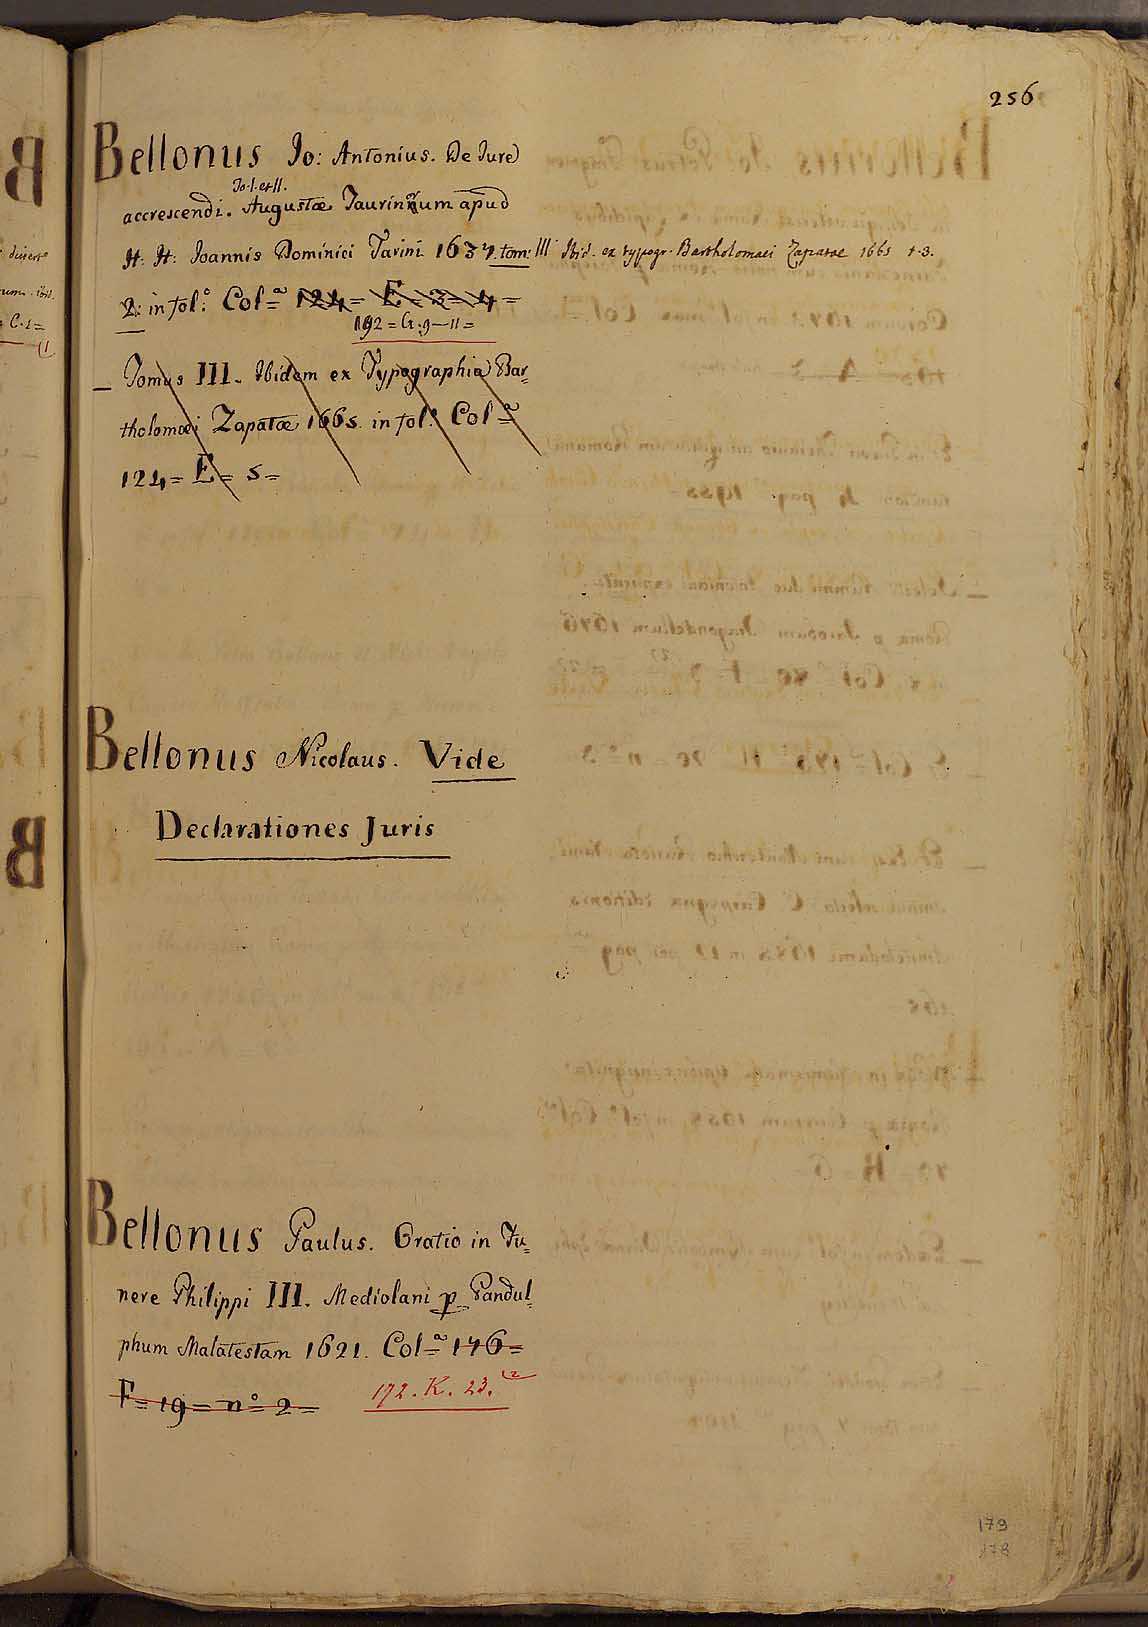 256
Bellonus Jo: Antonius. De Jure
To. I. et II.
accrescendi. Augustæ Taurinnum apud
H: H: Joannis Dominici Tarini 1637. tom: III Ibid. ex typogr. Bartholomaei Zapatae 1665 t. 3.
2: in fol:º Col=ª 124= E= 3= 4=
192 = G. 9-11=
_ Tomus III. Ibidem ex Typographia Bar-
tholomæi Zapatæ 1665. in fol:º Col=ª
124= E= 5=
Bellonus Nicolaus. Vide
Declarationes Juris
Bellonus Paulus. Oratio in Fu-
nere Philippi III. Mediolani p Pandul-
phum Malatestam 1621. Col=ª 146=
F= 19= nº= 2=
172. K. 23. (2
179
178